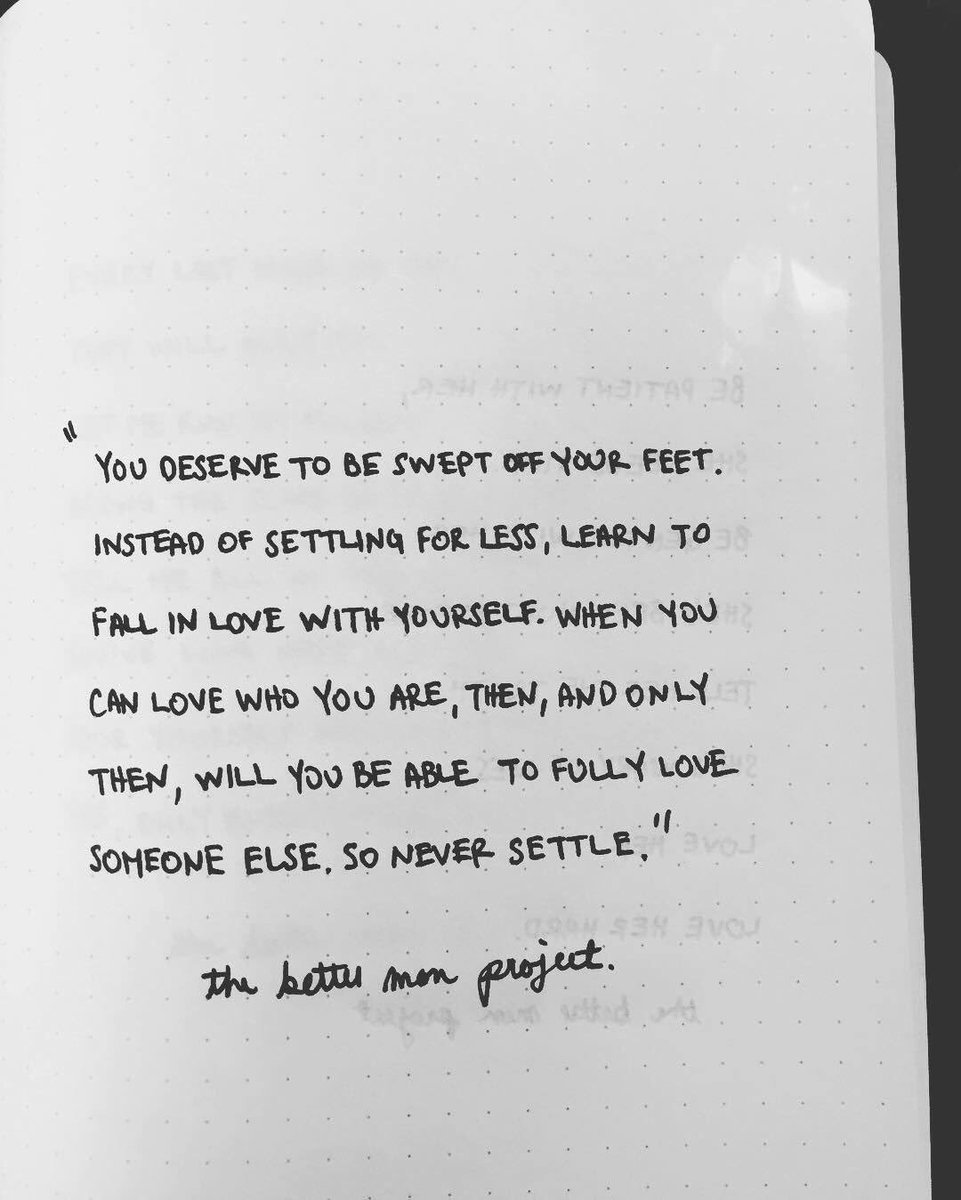 "YOU DESERVE TO BE SWEPT OFF YOUR FEET.
INSTEAD OF SETTLING FOR LESS, LEARN TO
FALL IN LOVE WITH YOURSELF. WHEN YOU
CAN LOVE WHO YOU ARE, THEN, AND ONLY
THEN, WILL YOU BE ABLE TO FULLY LOVE
SOMEONE ELSE. SO NEVER SETTLE."
the better man project.
BE PATIENT WITH HER,
LOVE HER HARD.
the better man project